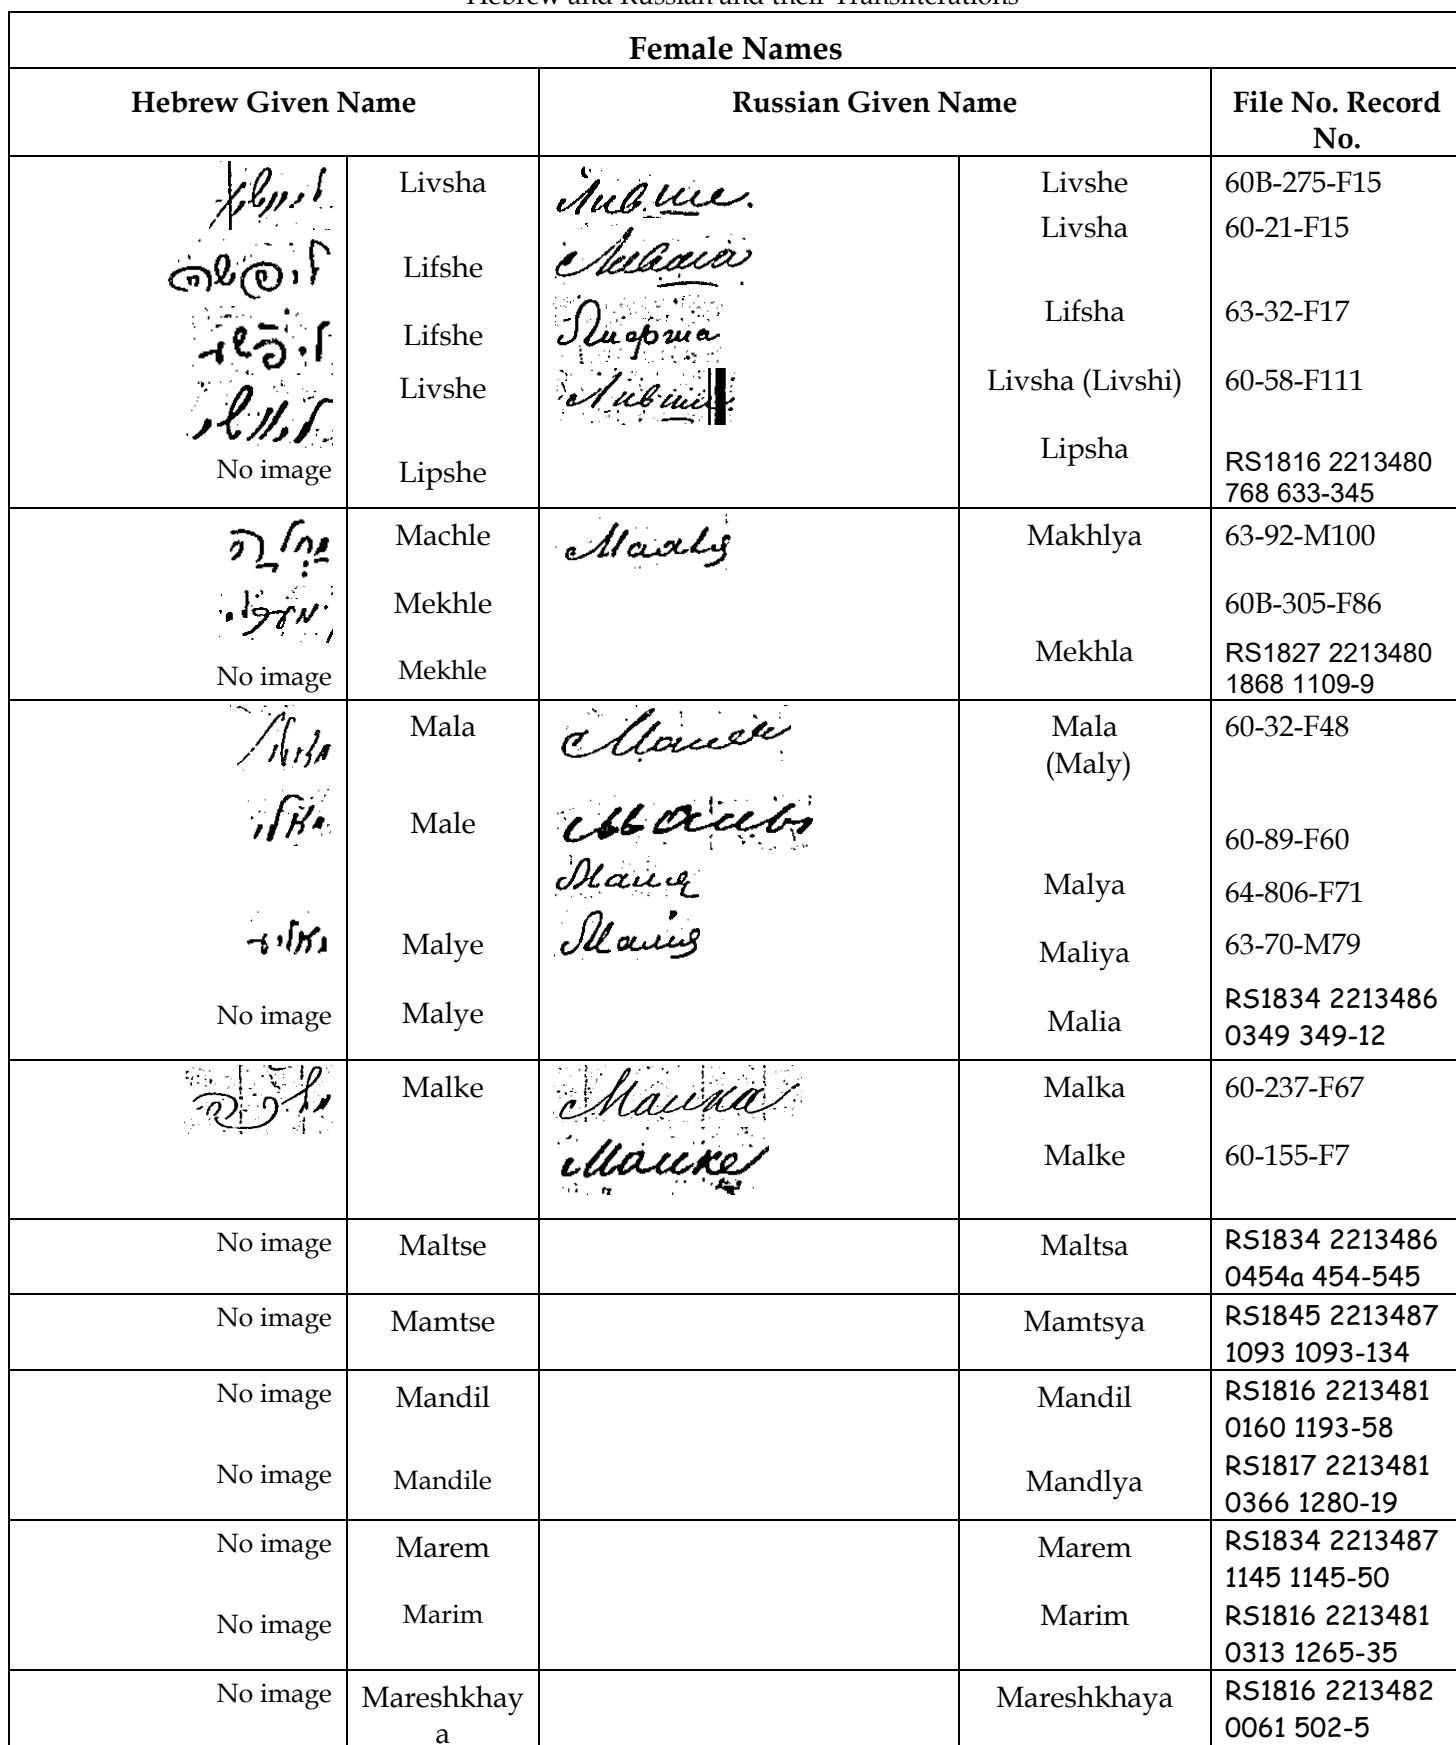 Hebrew and Russian and their Transliterations
Female Names
Hebrew Given Name Russian Given Name File No. Record
No.
Livsha Ливше. Livshe 60B-275-F15
Livsha 60-21-F15
ליפשה Lifshe
Lifsha 63-32-F17
Lifshe Лифша
Livshe Livsha (Livshi) 60-58-F111
Lipsha
No image Lipshe RS1816 2213480
768 633-345
Machle Махля Makhlya 63-92-M100
Mekhle 60B-305-F86
Mekhla RS1827 2213480
No image Mekhle 1868 1109-9
Mala Mala 60-32-F48
(Maly)
מאלי Male Малы 60-89-F60
Маля Malya 64-806-F71
Malye Малія Maliya 63-70-M79
No image Malye Malia RS1834 2213486
0349 349-12
מלכה Malke Малка Malka 60-237-F67
Малке Malke 60-155-F7
No image Maltse Maltsa RS1834 2213486
0454a 454-545
No image Mamtse Mamtsya RS1845 2213487
1093 1093-134
No image Mandil Mandil RS1816 2213481
0160 1193-58
No image Mandile Mandlya RS1817 2213481
0366 1280-19
No image Marem Marem RS1834 2213487
1145 1145-50
No image Marim Marim RS1816 2213481
0313 1265-35
No image Mareshkhay Mareshkhaya RS1816 2213482
a 0061 502-5